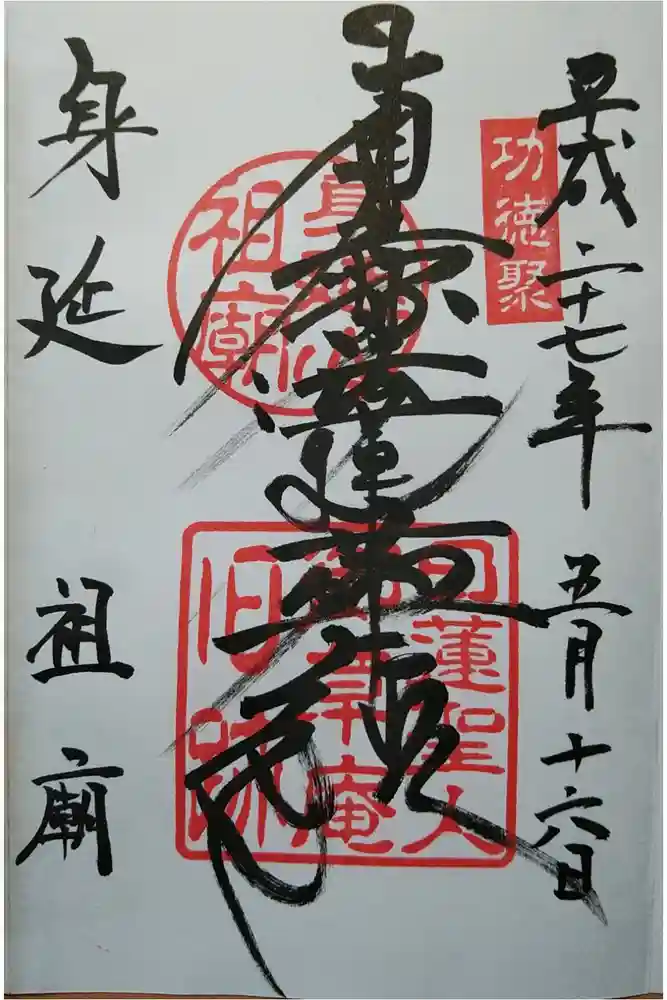 平成二十七年 五月 十六日
功徳聚
南無妙法蓮華経
身延山祖廟
日蓮聖人
御草庵
旧跡
身延 祖廟